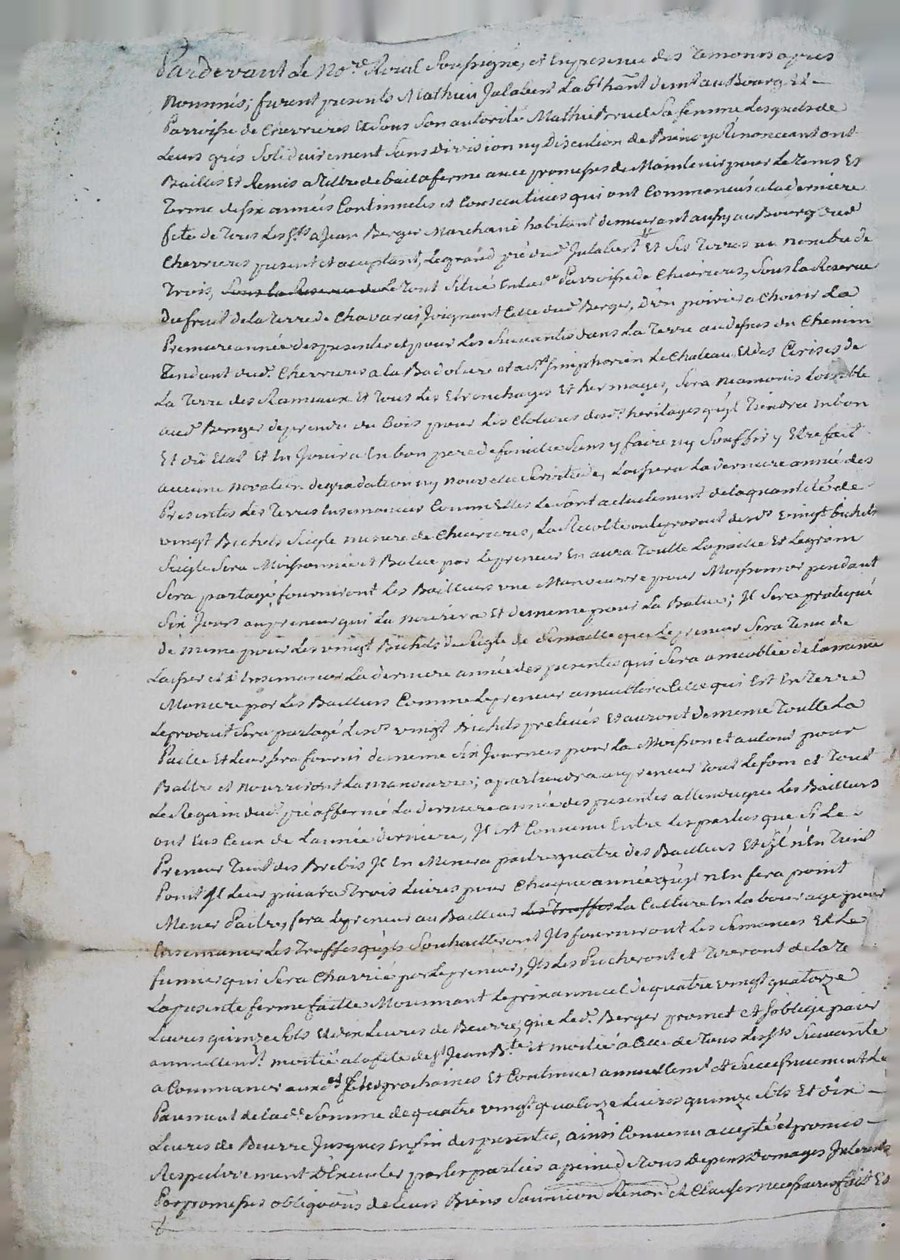 Pardevant le No.re Roial Soussigné, et en presence des temoins apres
nommés; furent presents Mathieu Jalabert Lab.r hant demt au Bourg et
Parroisse de Chevrieres et sous son autorité Mathie Pruel sa femme lesquels de
leurs grés solidairement sans division ny discution de biens y Renonceant ont
Baillés et Remis a titre de bail a ferme avec promesses de Maintenir pour le tems Et
terme de six années Continuelles et Consecutives qui ont Commencés a la derniere
fete de tous les Sts a Jean Berger Marchand habitant demeurant aussy au Bourg dud.
Chevrieres present et acceptant, Le grand pré dud. Jalabert Et ses terres au nombre de
trois, sous la Reserve de le tout situé en lad.e Parroisse de Chevrieres, sous la Reserve
du fruit de la terre de Chavaras joignant Celle dud. Berger, d'un poirié a Choisir La
Premiere année des presentes et pour les suivantes dans La terre au dessus du Chemin
tendant dud. Chevrieres a la et a St. Simphorien le Chateau, Et des Cerises de
La terre des Rameaux Et tous les Etronchages Et hermages, sera neamoins loisible
aud. Berger de prendre du Bois pour les Clotures desd. heritages qu'il tiendra en bon
Et dû Etat Et en Jouira en bon pere de famille sans y faire ny souffrir y Etre fait
aucune novation degradation ny nouvelle servitude, Laissera La derniere année des
Presentes Les terres Ensemencées Comme Elles le sont actuellement de la quantité de
vingt Bichets seigle mesure de Chevrieres, La Recolte en provenant desd. vingt bichets
seigle sera Moissonnée et Batue par le preneur En aura toutte La paille Et le grain
sera partagé, fourniront les Bailleurs une Manoeuvre pour Moissonner pendant
six Jours au preneur qui La nourira Et de meme pour La Batue; Il sera pratiqué
de meme pour les vingt Bichets de seigle de semaille que le preneur sera tenu de
Laisser et Ensemencer La derniere année des presentes qui sera ameublée de la meme
Maniere par les Bailleurs Comme le preneur ameublira Celle qui Est En terre
Le produit sera partagé lesd. vingt Bichets prelevés Et auront de meme toutte La
Paille Et leur sera fourni de meme six Journées pour La Moisson et autant pour
Battre et nourriront La manoeuvre; apartiendra au preneur tout le foin et tout
Le Regain dud. pré affermé La derniere année des presentes attendu que les Bailleurs
ont Eus Ceux de L'année derniere, Il est Convenu Entre les parties que si Le
Preneur tient des Brebis Il En Menera paitre quatre des Bailleurs Et s'il n'En tient
Point Il Leur paiera trois Livres pour Chaque année qu'il n'En fera point
Mener Paitre, fera le preneur au Bailleur Les truffes La Culture En Labourage pour
Ensemencer les truffes qu'ils souhaitteront Ils fourniront les semances Et le
fumier qui sera Charrié par le preneur, Ils les Piocheront et tireront de la te
La presente ferme faitte Moiennant le prix annuel de quatre vingt quatorze
Livres quinze sols Et dix Livres de Beurre, que led. Berger promet et s'oblige paier
annuellemt. moitié a la fete de St. Jean Bte. et moitié a Celle de tous les Sts suivante
a Commencer auxd. fetes prochaines Et Continuer annuellemt. et successivement Le
Paiement de lad.e somme de quatre vingt quatorze Livres quinze sols Et dix
Livres de Beurre Jusques En fin des presentes, ainsi Convenu accepté et promis
Respectivement d'Executer par les parties a peine de tous depens domages Interets
Par promesses obligaons de Leurs Biens soumission Renon et Clauses necessaires fait Et